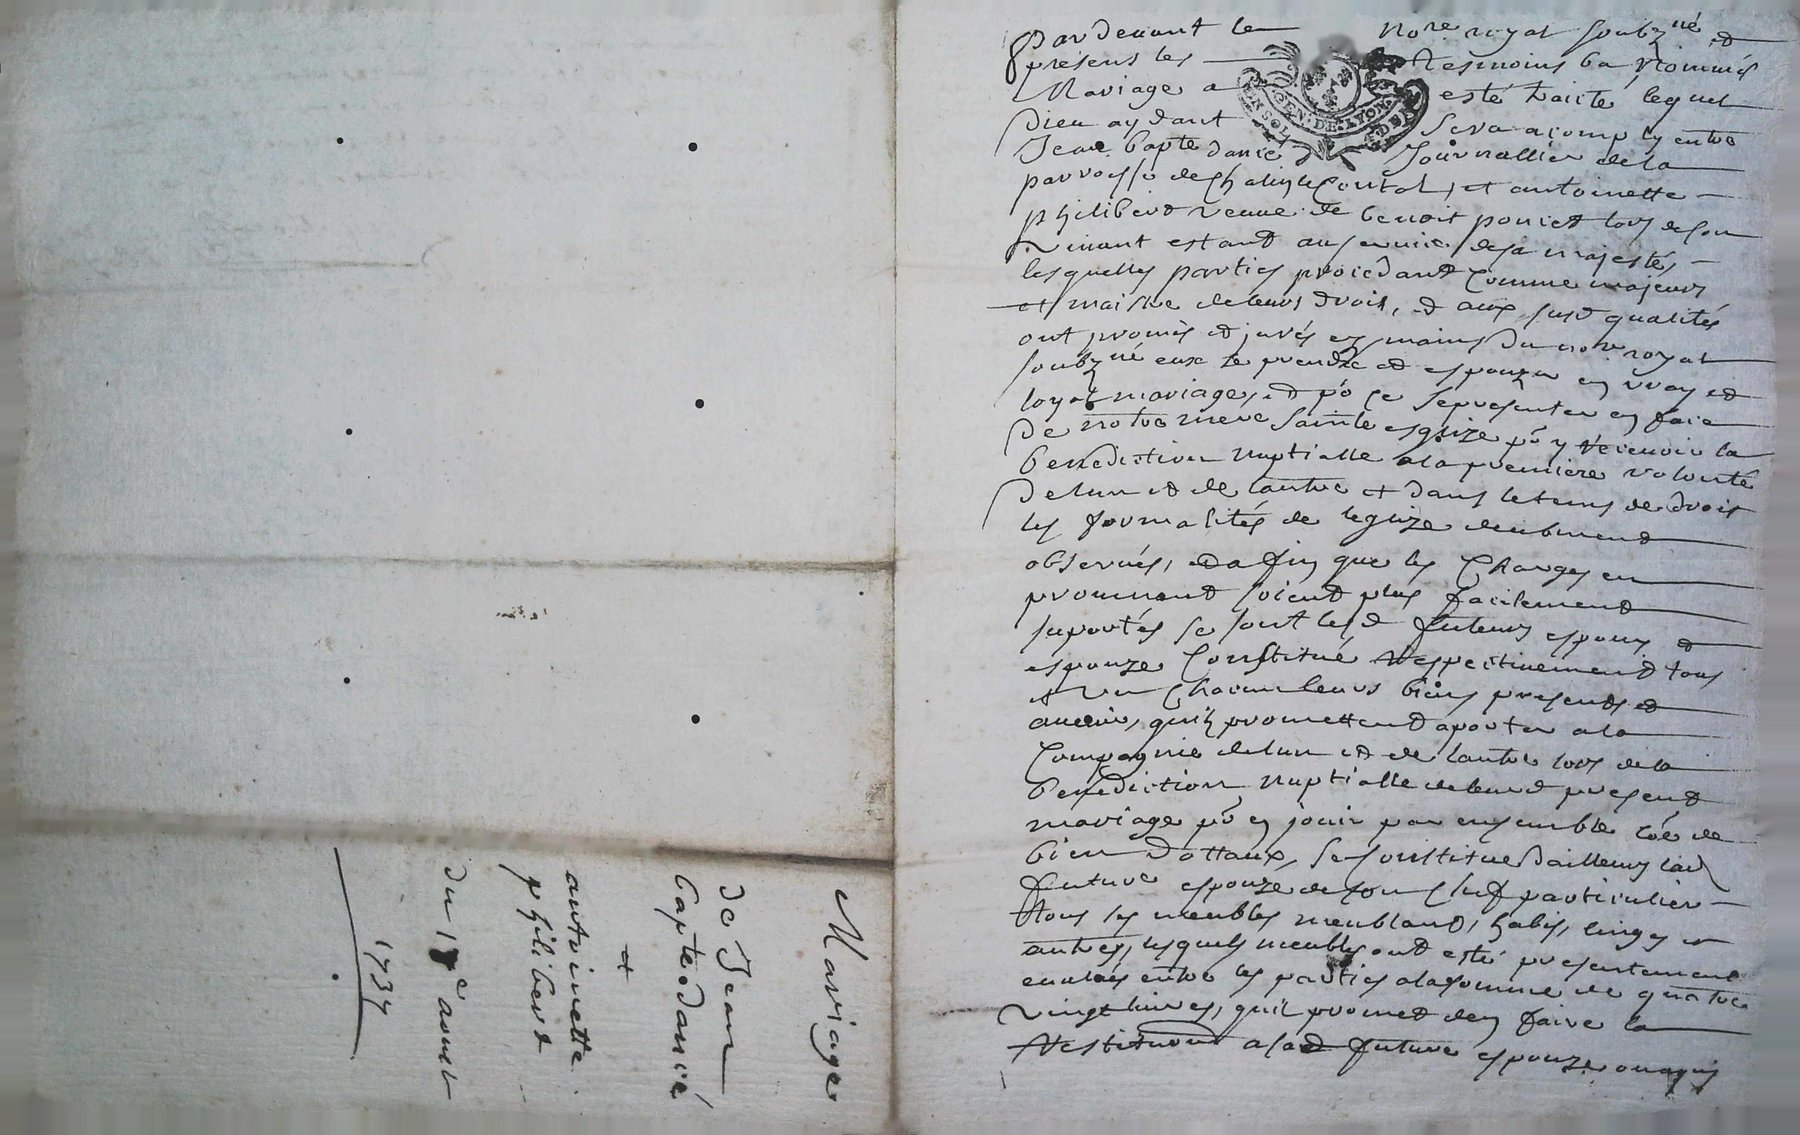 Mariage
de Jean
bapte danié
et
antoinette
philiberd
du 17e aoust
1737
pardeuant le nore royal soubzné et
presens les tesmoins ba nommés
Mariage a esté traité lequel
Dieu aydant sera acomply entre
Jean bapte danié Journallier de la
parroisse de et antoinette
philiberd veuue de benoit ponied lors de son
viuant estant au seruice de sa majestés
lesquelles parties procedant comme majeurs
et maistre de leurs drois, et aux susd qualités
ont promis et jurés es mains du nore royal
soubzné eux se prendre et espouzer en vray et
loyal mariage, et po ce se presenter en face
de notre mere sainte esglize po y receuoir la
benediction nuptialle a la premiere volonté
de lun et de lautre et dans le tems de droit
les formalités de leglize deubmend
obserués, et afin que les charges en
prouenant soient plus facilement
suportés se sont lesd futeurs espoux et
espouze constitué respectiuement tous
et un chacun leurs biens presends et
auenir, quilz promettent aporter a la
compagnie de lun et de lautre lors de la
benediction nuptialle de leur d presend
mariage po en jouir par ensemble coe de
bien dottaux, se constitue dailleurs lad
future espouze de son chef particulier
tous ses meubles meubland, habis, linges et
autres, lesquels meubles ont esté presentement
eualués entre les parties a la somme de quatre
vingt liures, quil promet den faire la
restitution a lad future espouze ou aquis
GEN. DE. LYON.